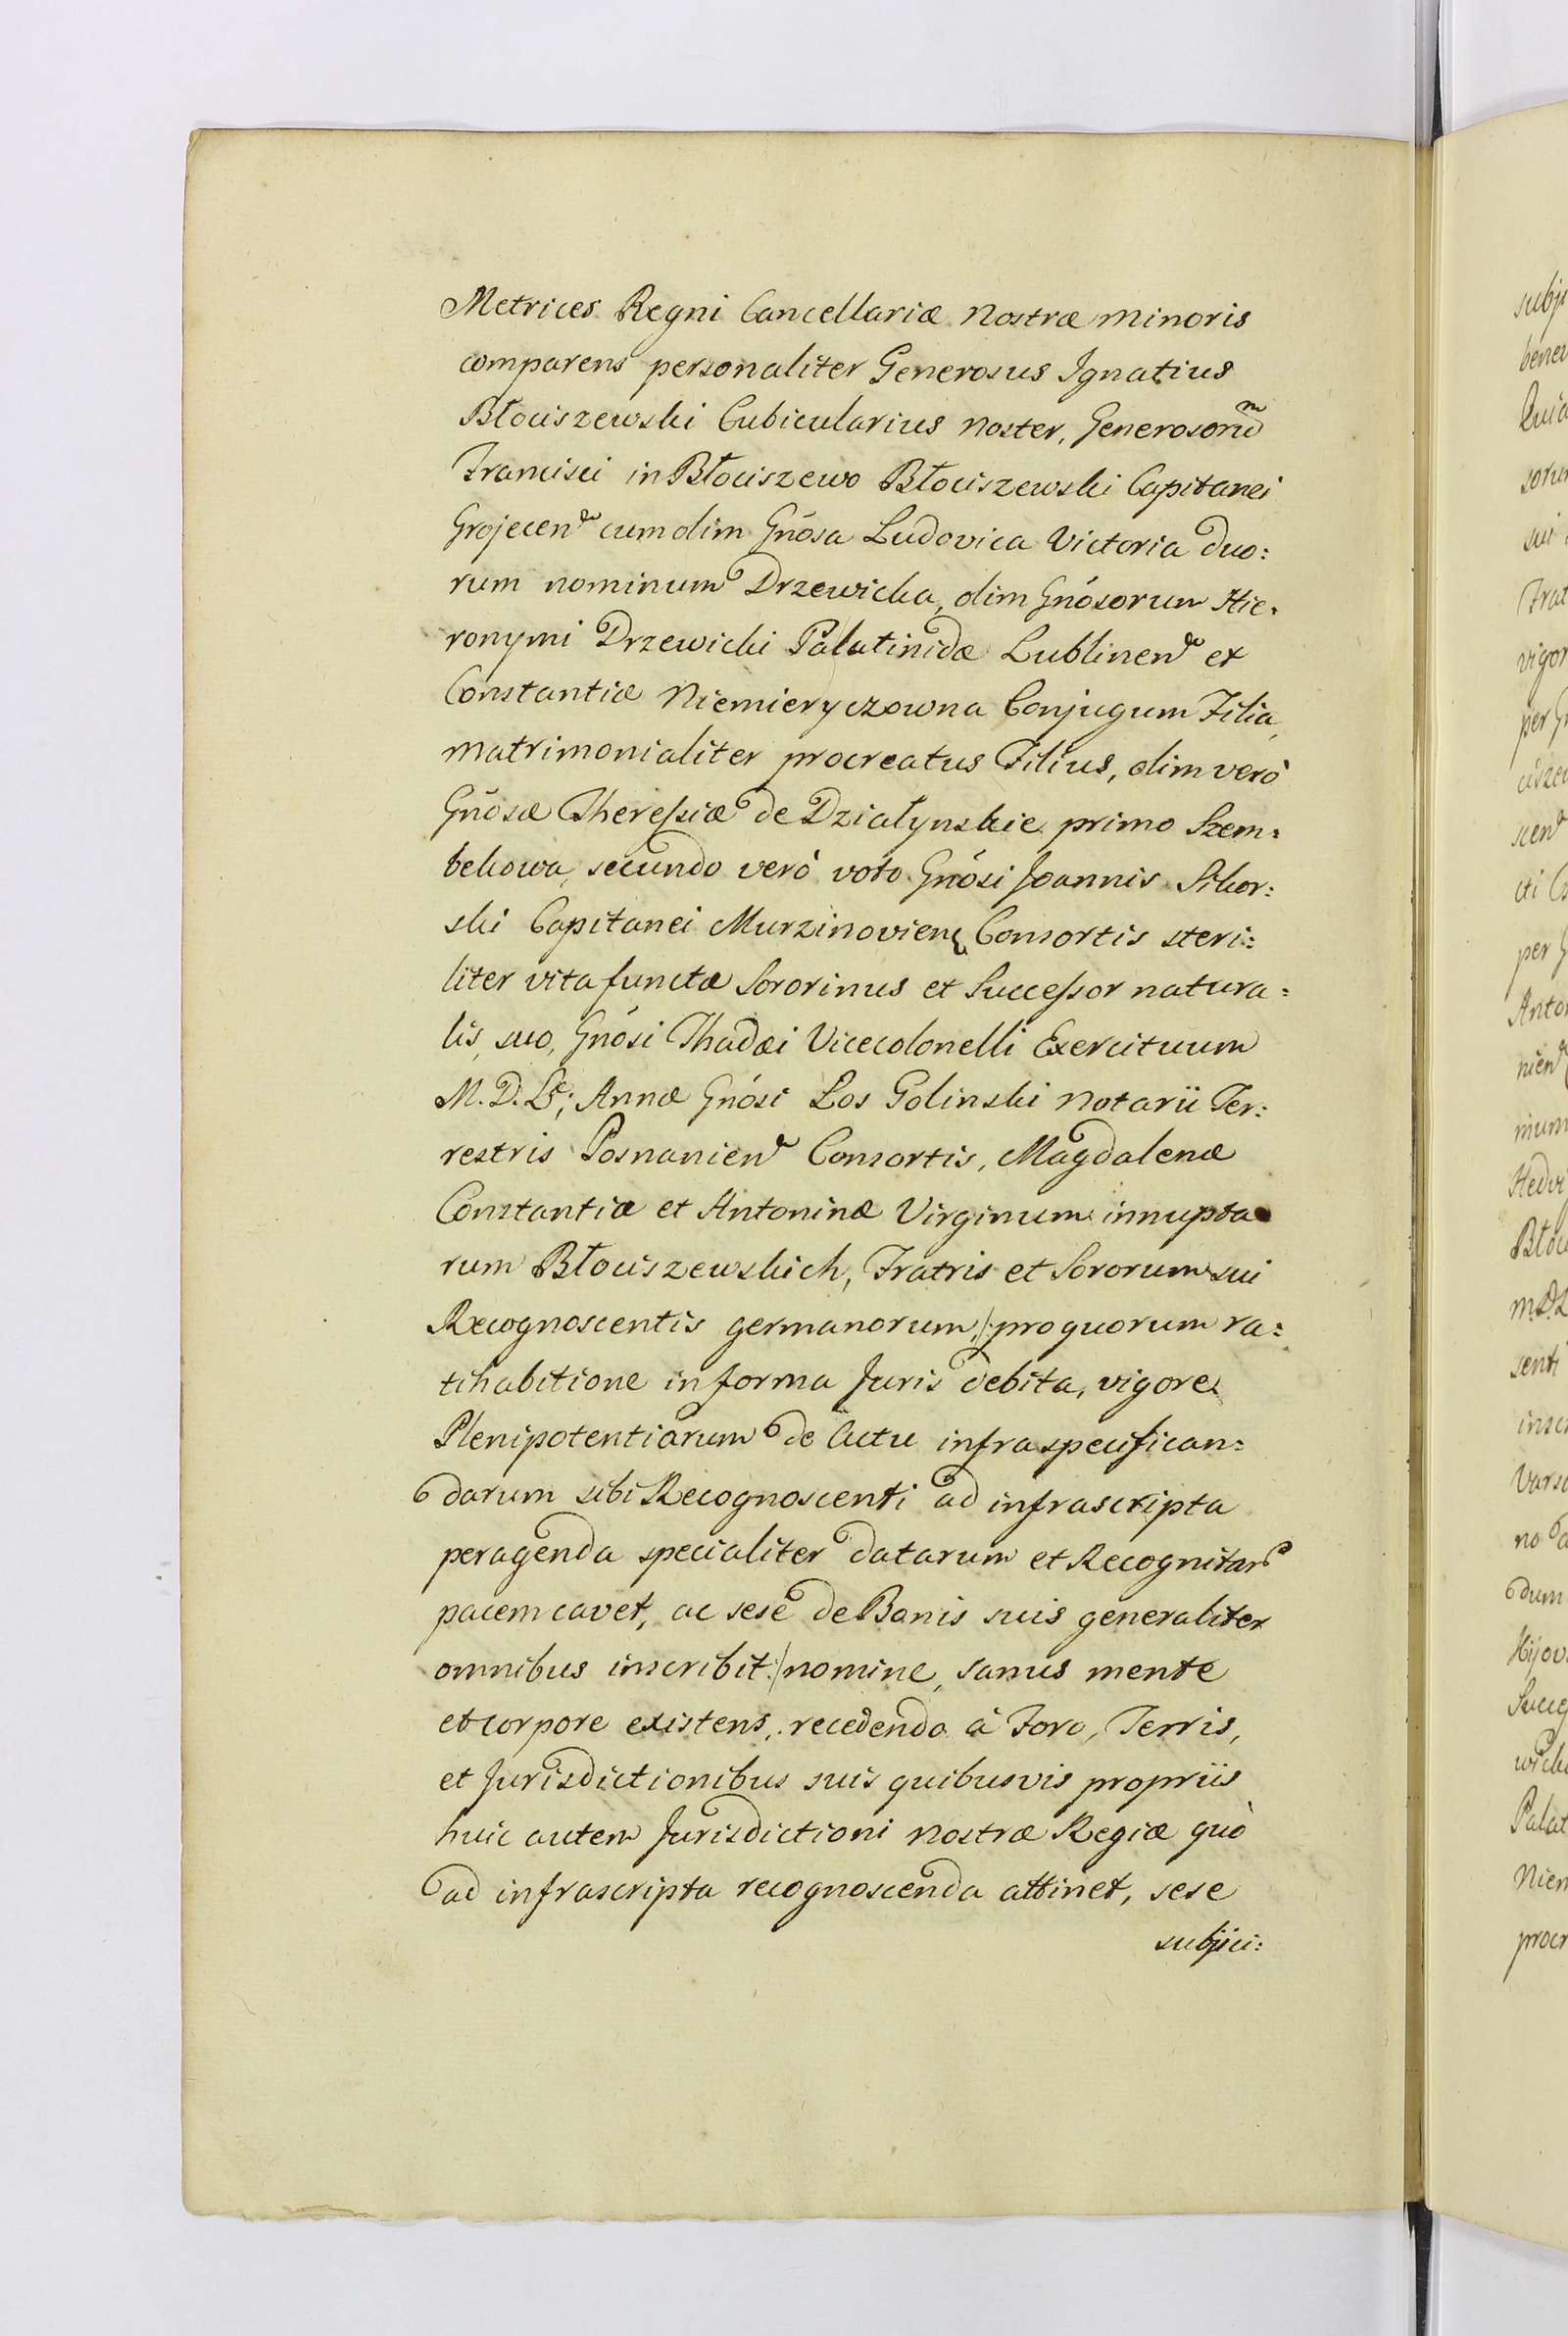 Metrices Regni Cancellariæ Nostræ Minoris
comparens personaliter Generosus Ignatius
Błociszewski Cubicularius Noster, Generosorũ
Francisci in Błociszewo Błociszewski Capitanei
Grojecen cum olim Gnósa Ludovica Victoria duo:
rum nominum Drzewicka, olim Gnósorum Hie:
ronymi Drzewicki Palatinidæ Lublinen et
Constantiæ Niemieryczowna Conjugum Filia,
matrimonialiter procreatus Filius, olim verò
Gnosæ Theressiæ de Działynskie primo Szem:
bekowa, secundo verò voto Gnósi Joannis Sikor:
ski Capitanei Murzinovien Consortis steri:
liter vita functæ Sororinus et Successor natura:
lis, suo, Gnósi Thadæi Vicecolonelli Exercituum
M. D. L; Annæ Gnósi Los Golinski Notarii Ter:
restris Posnanien Consortis, Magdalenæ
Constantiæ et Antoninæ Virginum innupta
rum Błociszewskich, Fratris et Sororum sui
Recognoscentis germanorum, /: pro quorum ra:
tihabitione in forma Juris debita, vigore
Plenipotentiarum de Actu infra specifican:
darum sibi Recognoscenti ad infrascripta
peragenda specialiter datarum et Recognitar
pacem cavet, ac sese de Bonis suis generaliter
omnibus inscribit :/ nomine, sanus mente
et corpore existens, recedendo à Foro, Terris,
et Jurisdictionibus suis quibusvis propriis
huic autem Jurisdictioni Nostræ Regiæ quò
ad infrascripta recognoscenda attinet, sese
subjici: